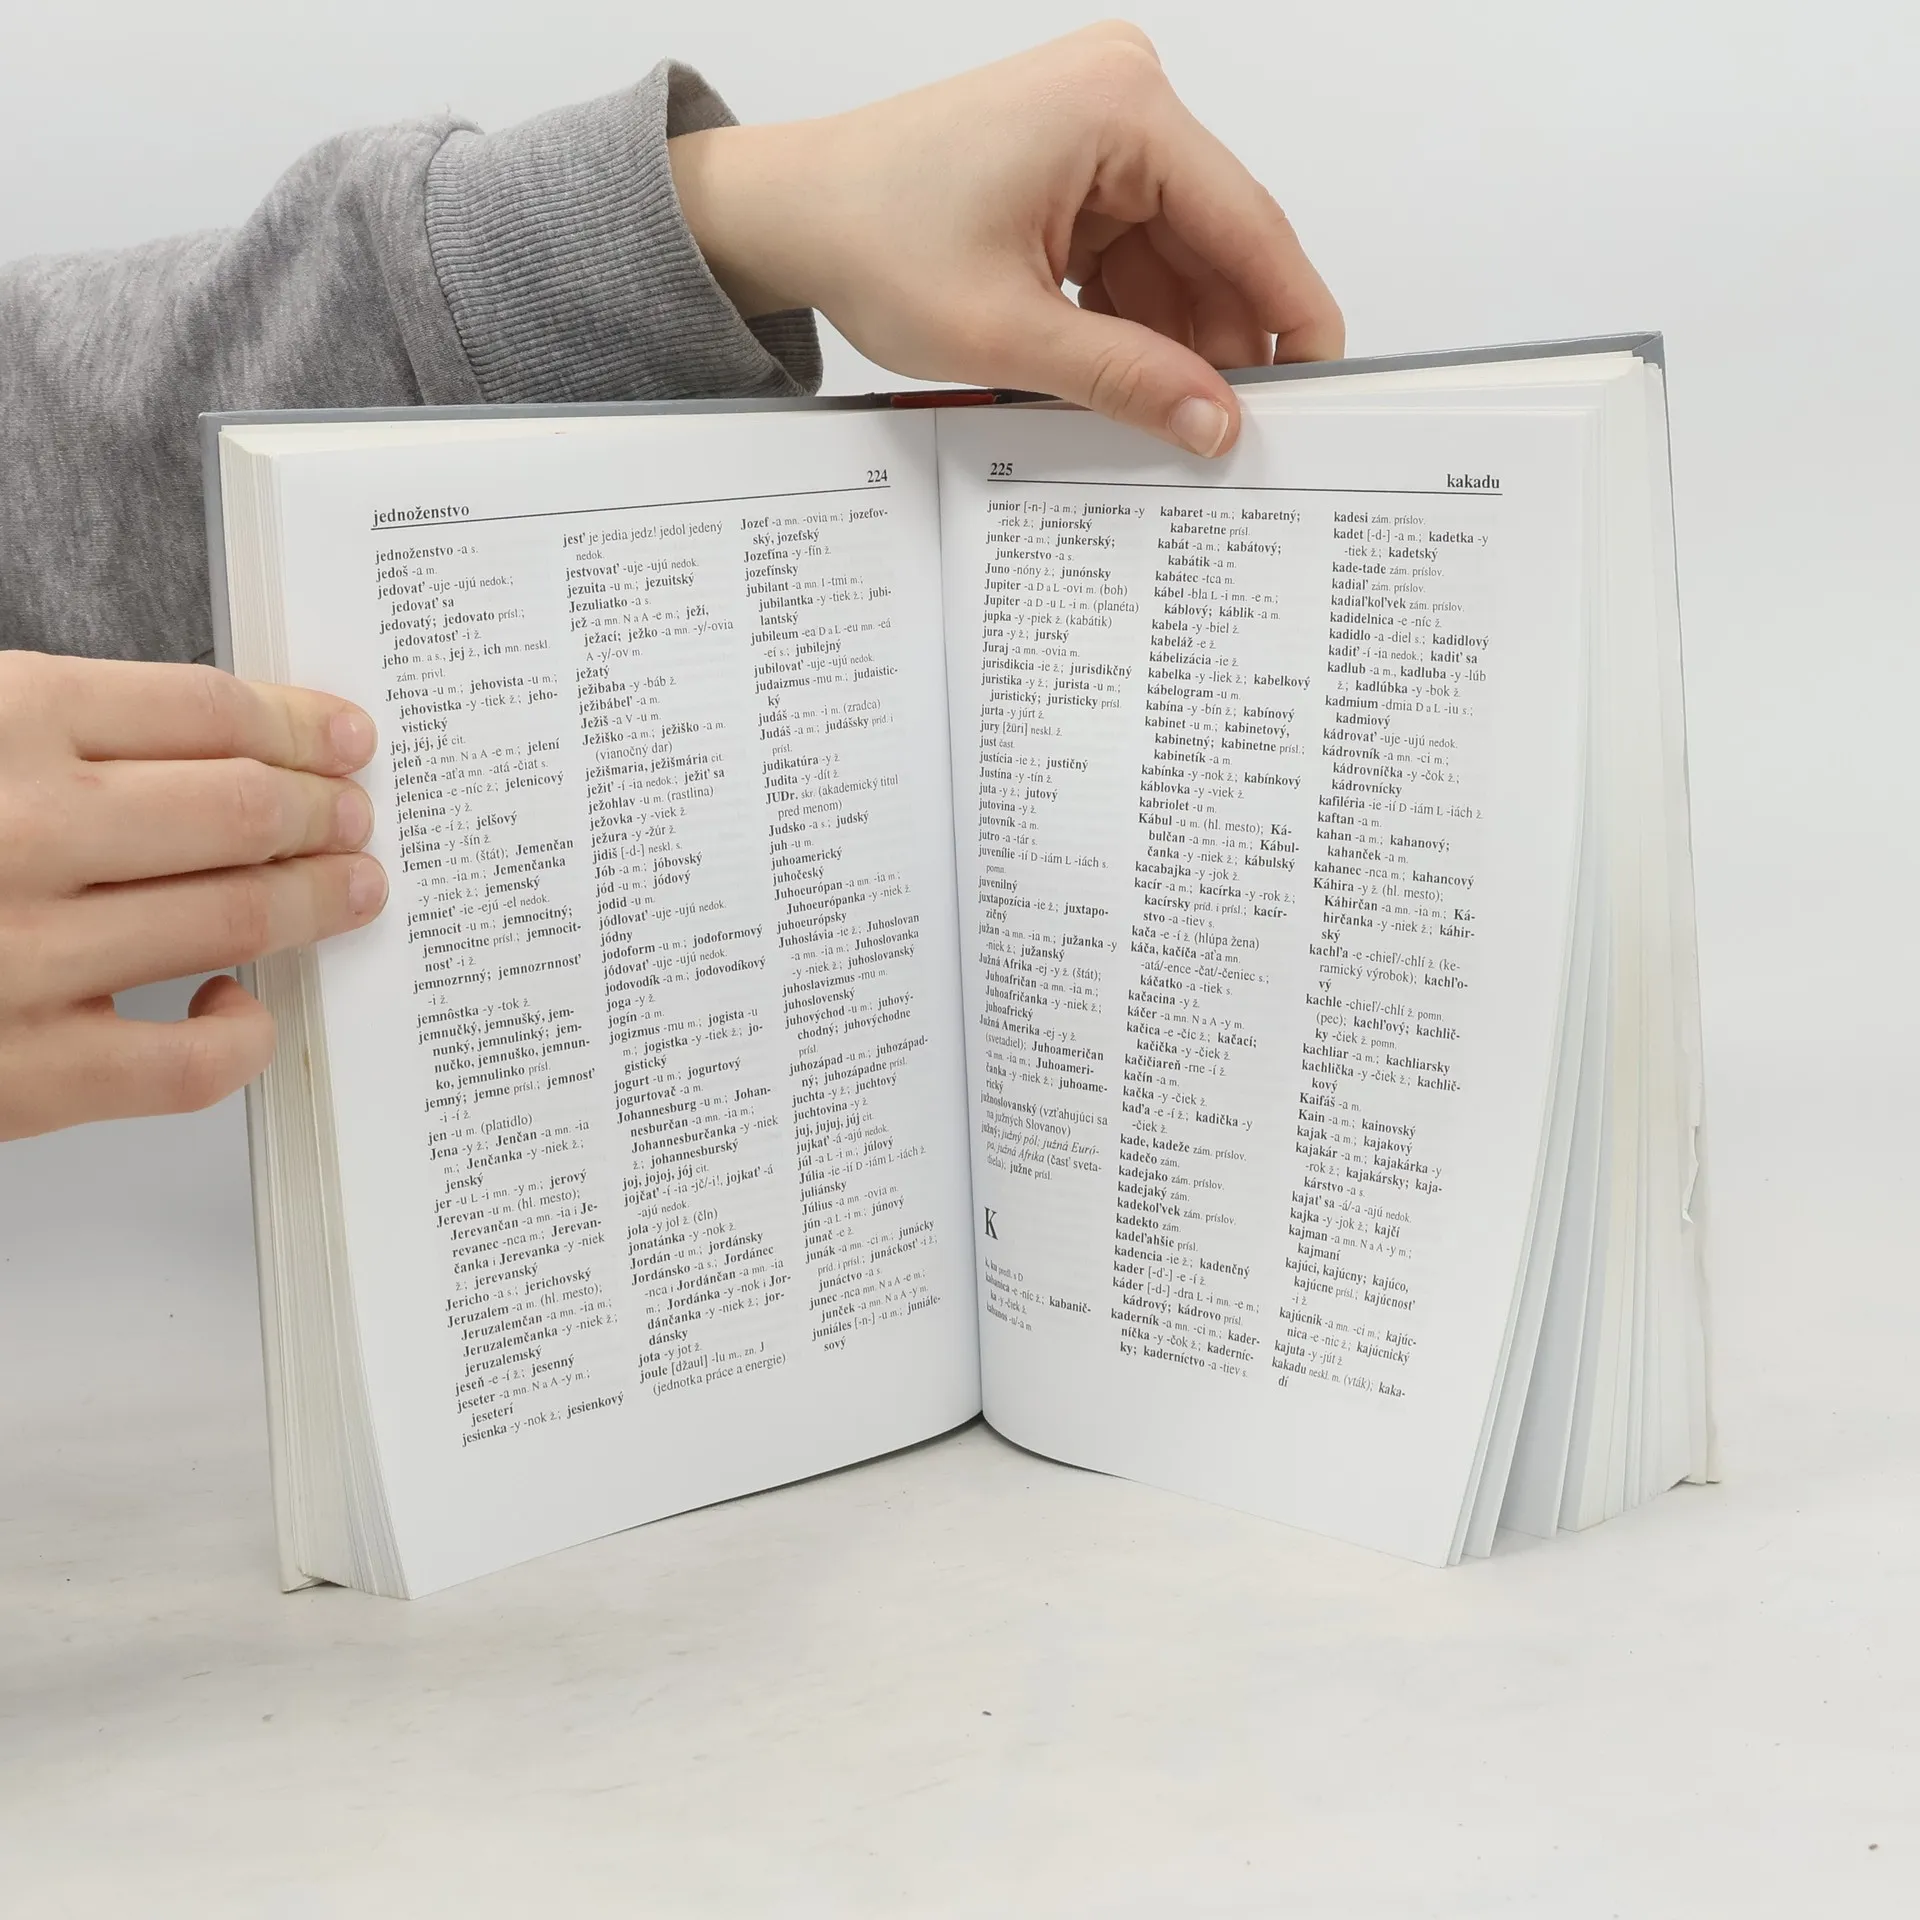 jednoženstvo
224
jednoženstvo -a s.
jedoš -a m.
jedovať -uje -ujú nedok.;
jedovať sa
jedovatý; jedovato prísl.;
jedovatosť -i ž.
jeho m. a s., jej ž., ich mn. neskl.
zám. privl.
Jehova -u m.; jehovista -u m.;
jehovistka -y -tiek ž.; jeho-
vistický
jej, jéj, jé cit.
jeleň -a mn. N a A -e m.; jelení
jelenča -aťa mn. -atá -čiat s.
jelenica -e -níc ž.; jelenicový
jelenina -y ž.
jelša -e -í ž.; jelšový
jelšina -y -šín ž.
Jemen -u m. (štát); Jemenčan
-a mn. -ia m.; Jemenčanka
-y -niek ž.; jemenský
jemnieť -ie -ejú -el nedok.
jemnocit -u m.; jemnocitný;
jemnocitne prísl.; jemnocit-
nosť -i ž.
jemnozrnný; jemnozrnnosť
-i ž.
jemnôstka -y -tok ž.
jemnučký, jemnušký, jem-
nunký, jemnulinký; jem-
nučko, jemnuško, jemnun-
ko, jemnulinko prísl.
jemný; jemne prísl.; jemnosť
-i -í ž.
jen -u m. (platidlo)
Jena -y ž.; Jenčan -a mn. -ia
m.; Jenčanka -y -niek ž.;
jenský
jer -u L -i mn. -y m.; jerový
Jerevan -u m. (hl. mesto);
Jerevančan -a mn. -ia i Je-
revanec -nca m.; Jerevan-
čanka i Jerevanka -y -niek
ž.; jerevanský
Jericho -a s.; jerichovský
Jeruzalem -a m. (hl. mesto);
Jeruzalemčan -a mn. -ia m.;
Jeruzalemčanka -y -niek ž.;
jeruzalemský
jeseň -e -í ž.; jesenný
jeseter -a mn. N a A -y m.;
jeseterí
jesienka -y -nok ž.; jesienkový
jesť je jedia jedz! jedol jedený
nedok.
jestvovať -uje -ujú nedok.
jezuita -u m.; jezuitský
Jezuliatko -a s.
jež -a mn. N a A -e m.; ježí,
ježací; ježko -a mn. -y/-ovia
A -y/-ov m.
ježatý
ježibaba -y -báb ž.
ježibábeľ -a m.
Ježiš -a V -u m.
Ježiško -a m.; ježiško -a m.
(vianočný dar)
ježišmaria, ježišmária cit.
ježiť -í -ia nedok.; ježiť sa
ježohlav -u m. (rastlina)
ježovka -y -viek ž.
ježura -y -žúr ž.
jidiš [-d-] neskl. s.
Jób -a m.; jóbovský
jód -u m.; jódový
jodid -u m.
jódlovať -uje -ujú nedok.
jódny
jodoform -u m.; jodoformový
jódovať -uje -ujú nedok.
jodovodík -a m.; jodovodíkový
joga -y ž.
jogín -a m.
jogizmus -mu m.; jogista -u
m.; jogistka -y -tiek ž.; jo-
gistický
jogurt -u m.; jogurtový
jogurtovač -a m.
Johannesburg -u m.; Johan-
nesburčan -a mn. -ia m.;
Johannesburčanka -y -niek
ž.; johannesburský
joj, jojoj, jój cit.
jojčať -í -ia -jč/-i!, jojkať -á
-ajú nedok.
jola -y jol ž. (čln)
jonatánka -y -nok ž.
Jordán -u m.; jordánsky
Jordánsko -a s.; Jordánec
-nca i Jordánčan -a mn. -ia
m.; Jordánka -y -nok i Jor-
dánčanka -y -niek ž.; jor-
dánsky
jota -y jot ž.
joule [džaul] -lu m., zn. J
(jednotka práce a energie)
Jozef -a mn. -ovia m.; jozefov-
ský, jozefský
Jozefína -y -fín ž.
jozefínsky
jubilant -a mn. I -tmi m.;
jubilantka -y -tiek ž.; jubi-
lantský
jubileum -ea D a L -eu mn. -eá
-eí s.; jubilejný
jubilovať -uje -ujú nedok.
judaizmus -mu m.; judaistic-
ký
judáš -a mn. -i m. (zradca)
Judáš -a m.; judášsky príd. i
prísl.
judikatúra -y ž.
Judita -y -dít ž.
JUDr. skr. (akademický titul
pred menom)
Judsko -a s.; judský
juh -u m.
juhoamerický
juhočeský
Juhoeurópan -a mn. -ia m.;
Juhoeurópanka -y -niek ž.
juhoeurópsky
Juhoslávia -ie ž.; Juhoslovan
-a mn. -ia m.; Juhoslovanka
-y -niek ž.; juhoslovanský
juhoslavizmus -mu m.
juhoslovenský
juhovýchod -u m.; juhový-
chodný; juhovýchodne
prísl.
juhozápad -u m.; juhozápad-
ný; juhozápadne prísl.
juchta -y ž.; juchtový
juchtovina -y ž.
juj, jujuj, júj cit.
jujkať -á -ajú nedok.
júl -a L -i m.; júlový
Júlia -ie -ií D -iám L -iách ž.
juliánsky
Július -a mn. -ovia m.
jún -a L -i m.; júnový
junač -e ž.
junák -a mn. -ci m.; junácky
príd. i prísl.; junáckosť -i ž.;
junáctvo -a s.
junec -nca mn. N a A -e m.;
junček -a mn. N a A -y m.
juniáles [-n-] -u m.; juniále-
sový
225
kakadu
junior [-n-] -a m.; juniorka -y
-riek ž.; juniorský
junker -a m.; junkerský;
junkerstvo -a s.
Juno -nóny ž.; junónsky
Jupiter -a D a L -ovi m. (boh)
Jupiter -a D -u L -i m. (planéta)
jupka -y -piek ž. (kabátik)
jura -y ž.; jurský
Juraj -a mn. -ovia m.
jurisdikcia -ie ž.; jurisdikčný
juristika -y ž.; jurista -u m.;
juristický; juristicky prísl.
jurta -y júrt ž.
jury [žüri] neskl. ž.
just čast.
justícia -ie ž.; justičný
Justína -y -tín ž.
juta -y ž.; jutový
jutovina -y ž.
jutovník -a m.
jutro -a -tár s.
juvenílie -ií D -iám L -iách s.
pomn.
juvenilný
juxtapozícia -ie ž.; juxtapo-
zičný
južan -a mn. -ia m.; južanka -y
-niek ž.; južanský
Južná Afrika -ej -y ž. (štát);
Juhoafričan -a mn. -ia m.;
Juhoafričanka -y -niek ž.;
juhoafrický
Južná Amerika -ej -y ž.
(svetadiel); Juhoameričan
-a mn. -ia m.; Juhoameri-
čanka -y -niek ž.; juhoame-
rický
južnoslovanský (vzťahujúci sa
na južných Slovanov)
južný; južný pól; južná Euró-
pa, južná Afrika (časť sveta-
diela); južne prísl.
K
k, ku predl. s D
kabanica -e -níc ž.; kabanič-
ka -y -čiek ž.
kabanos -u/-a m.
kabaret -u m.; kabaretný;
kabaretne prísl.
kabát -a m.; kabátový;
kabátik -a m.
kabátec -tca m.
kábel -bla L -i mn. -e m.;
káblový; káblik -a m.
kabela -y -biel ž.
kabeláž -e ž.
kábelizácia -ie ž.
kabelka -y -liek ž.; kabelkový
kábelogram -u m.
kabína -y -bín ž.; kabínový
kabinet -u m.; kabinetový,
kabinetný; kabinetne prísl.;
kabinetík -a m.
kabínka -y -nok ž.; kabínkový
káblovka -y -viek ž.
kabriolet -u m.
Kábul -u m. (hl. mesto); Ká-
bulčan -a mn. -ia m.; Kábul-
čanka -y -niek ž.; kábulský
kacabajka -y -jok ž.
kacír -a m.; kacírka -y -rok ž.;
kacírsky príd. i prísl.; kacír-
stvo -a -tiev s.
kača -e -í ž. (hlúpa žena)
káča, kačíča -aťa mn.
-atá/-ence -čat/-čeniec s.;
káčatko -a -tiek s.
kačacina -y ž.
káčer -a mn. N a A -y m.
kačica -e -číc ž.; kačací;
kačička -y -čiek ž.
kačičiareň -rne -í ž.
kačín -a m.
kačka -y -čiek ž.
kaďa -e -í ž.; kadička -y
-čiek ž.
kade, kadeže zám. príslov.
kadečo zám.
kadejako zám. príslov.
kadejaký zám.
kadekoľvek zám. príslov.
kadekto zám.
kadeľahšie prísl.
kadencia -ie ž.; kadenčný
kader [-ď-] -e -í ž.
káder [-d-] -dra L -i mn. -e m.;
kádrový; kádrovo prísl.
kaderník -a mn. -ci m.; kader-
níčka -y -čok ž.; kaderníc-
ky; kaderníctvo -a -tiev s.
kadesi zám. príslov.
kadet [-d-] -a m.; kadetka -y
-tiek ž.; kadetský
kade-tade zám. príslov.
kadiaľ zám. príslov.
kadiaľkoľvek zám. príslov.
kadidelnica -e -níc ž.
kadidlo -a -diel s.; kadidlový
kadiť -í -ia nedok.; kadiť sa
kadlub -a m., kadluba -y -lúb
ž.; kadlúbka -y -bok ž.
kadmium -dmia D a L -iu s.;
kadmiový
kádrovať -uje -ujú nedok.
kádrovník -a mn. -ci m.;
kádrovníčka -y -čok ž.;
kádrovnícky
kafiléria -ie -ií D -iám L -iách ž.
kaftan -a m.
kahan -a m.; kahanový;
kahanček -a m.
kahanec -nca m.; kahancový
Káhira -y ž. (hl. mesto);
Káhirčan -a mn. -ia m.; Ká-
hirčanka -y -niek ž.; káhir-
ský
kachľa -e -chieľ/-chlí ž. (ke-
ramický výrobok); kachľo-
vý
kachle -chieľ/-chlí ž. pomn.
(pec); kachľový; kachlič-
ky -čiek ž. pomn.
kachliar -a m.; kachliarsky
kachlička -y -čiek ž.; kachlič-
kový
Kaifáš -a m.
Kain -a m.; kainovský
kajak -a m.; kajakový
kajakár -a m.; kajakárka -y
-rok ž.; kajakársky; kaja-
kárstvo -a s.
kajať sa -á/-a -ajú nedok.
kajka -y -jok ž.; kajčí
kajman -a mn. N a A -y m.;
kajmaní
kajúci, kajúcny; kajúco,
kajúcne prísl.; kajúcnosť
-i ž.
kajúcnik -a mn. -ci m.; kajúc-
nica -e -níc ž.; kajúcnický
kajuta -y -jút ž.
kakadu neskl. m. (vták); kaka-
dí